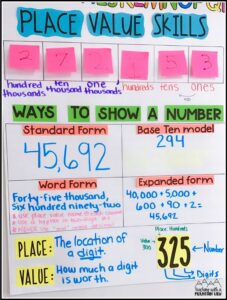 PLACE VALUE SKILLS
2 7 2 1 5 3
hundred ten one hundreds tens ones
thousands thousand thousands
WAYS TO SHOW A NUMBER
Standard Form Base Ten model
45,692 294
Word Form Expanded form
Forty-five thousand, 40,000 + 5,000 +
six hundred ninety-two 600 + 90 + 2 =
45,692
PLACE: The location of a digit.
VALUE: How much a digit is worth.
Place: Hundreds
Value = 300
325
Number
Digits
Teaching with a
MOUNTAIN VIEW